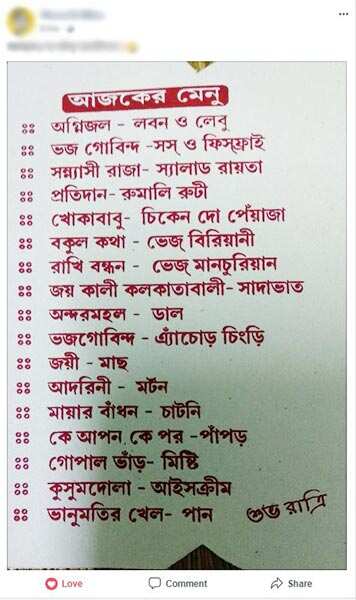 আজকের মেনু
অগ্নিজল - লবন ও লেবু
ভজ গোবিন্দ -সস্ ও ফিস্ফ্রাই
সন্ন্যাসী রাজা- স্যালাড রায়তা
প্রতিদান- রুমালি রুটী
খোকাবাবু- চিকেন দো পেঁয়াজা
বকুল কথা - ভেজ্ বিরিয়ানী
রাখি বন্ধন - ভেজ্ মানচুরিয়ান
জয় কালী কলকাতাবালী- সাদাভাত
অন্দরমহল - ডাল
ভজগোবিন্দ - এ্যাঁচোড় চিংড়ি
জয়ী - মাছ
আদরিনী - মর্টন
মায়ার বাঁধন - চাটনি
কে আপন কে পর -পাঁপড়
গোপাল ভাঁড়- মিষ্টি
কুসুমদোলা - আইসক্রীম
ভানুমতির খেল- পান
শুভ রাত্রি
Love
Comment
Share